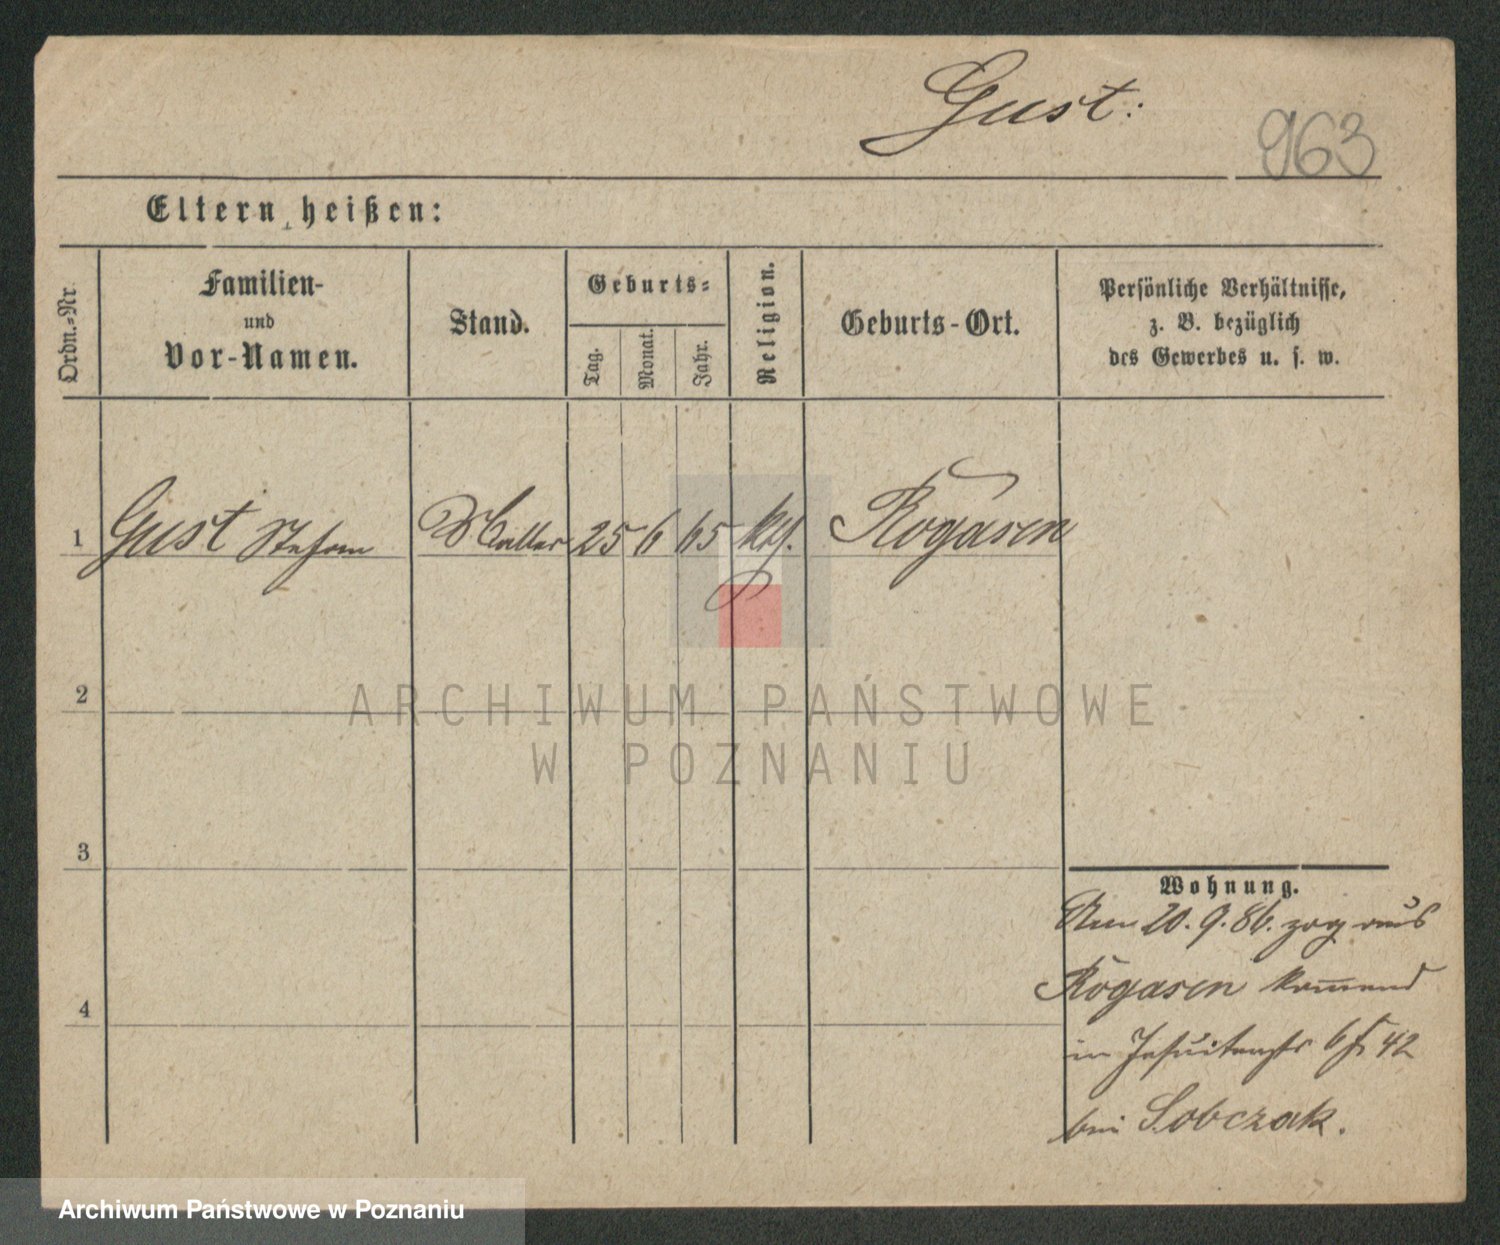 Gust:
963
Eltern heißen:
Ordn.-Nr.
Familien-
und
Vor-Namen.
Stand.
Geburts-
Tag.
Monat.
Jahr.
Religion.
Geburts-Ort.
Persönliche Verhältnisse,
z. B. bezüglich
des Gewerbes u. s. w.
1 Gust Stefan 25 6 65 Rogasen
2
3
4
ARCHIWUM PAŃSTWOWE
W POZNANIU
Wohnung.
Am 20. 9. 86. zog aus
Rogasen kommend
in Jesuitenstr 42
bei Sobczak.
Archiwum Państwowe w Poznaniu